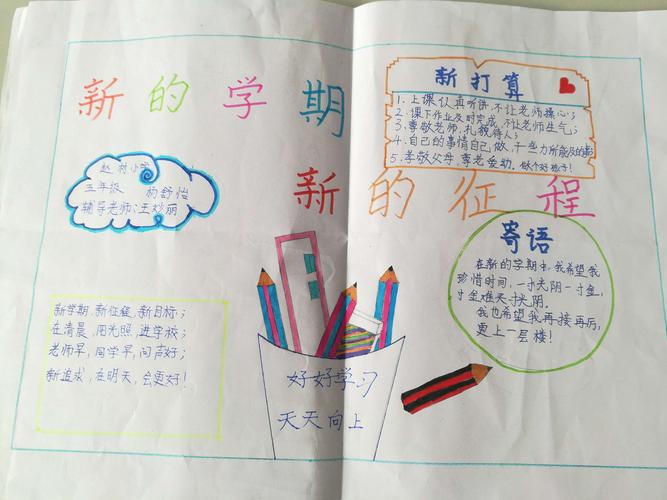 新的学期
新的征程
赵村小学
三年级 杨舒怡
辅导老师:王妙丽
新打算
1、上课认真听讲,不让老师操心;
2、课下作业及时完成,不让老师生气;
3、尊敬老师,礼貌待人;
4、自己的事情自己做,干些力所能及的事;
5、孝敬父母,尊老爱幼。做个好孩子!
寄语
在新的学期中,我希望我
珍惜时间,一寸光阴一寸金,
寸金难买寸光阴。
我也希望我再接再厉,
更上一层楼!
新学期,新征程,新目标;
在清晨,阳光照,进学校;
老师早,同学早,问声好;
新追求,在明天,会更好!
好好学习
天天向上